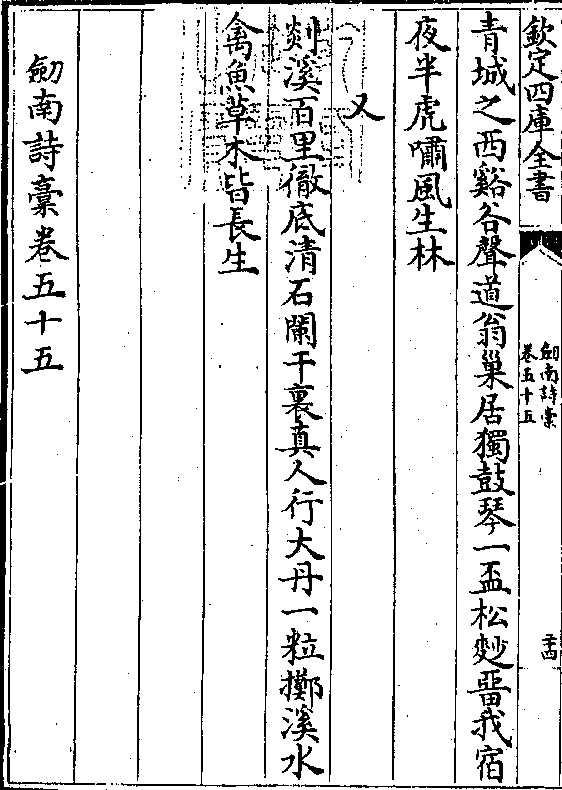 欽定四庫全書
劒南詩稾
卷五十五
二十四
青城之西谿谷聲道翁巢居獨鼓琴一盃松麨畱我宿
夜半虎嘯風生林
又
剡溪百里徹底清石闌干裏真人行大丹一粒擲溪水
禽魚草木皆長生
劒南詩稾卷五十五